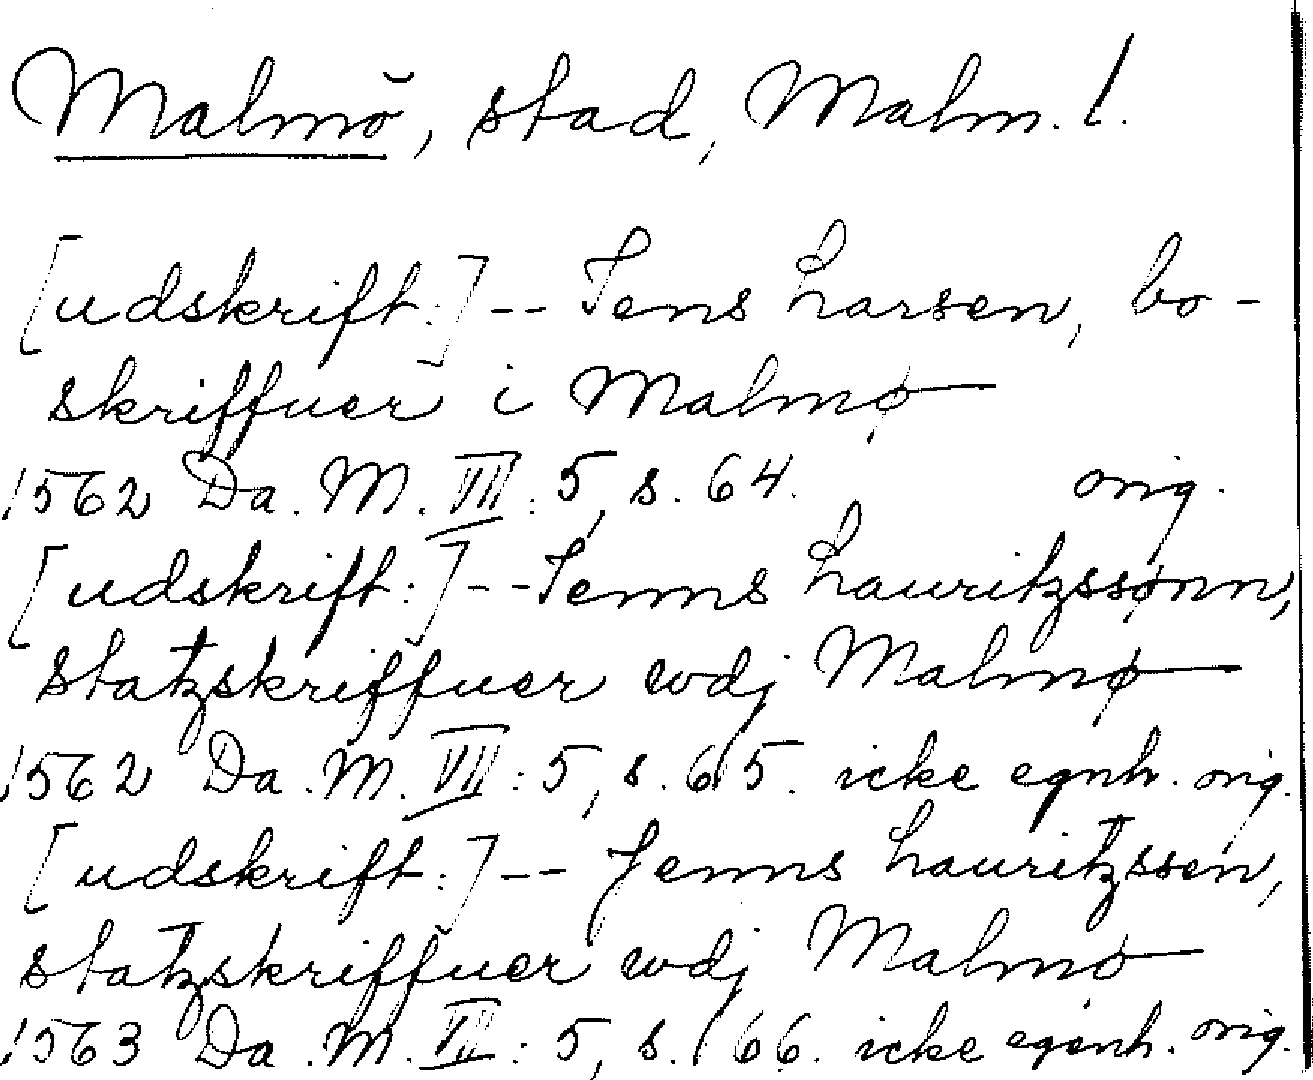 Malmö, stad, Malm. l.
[udskrift:] -- Jens Larsen, bo-
skriffuer i Malmø
1562 Da. M. VII: 5, s. 64. orig.
[udskrift:] -- Jenns Lauritzssønn,
statzskriffuer wdj Malmø
1562 Da. M. VII: 5, s. 65. icke egnh. orig.
[udskrift:] -- Jenns Lauritzssen,
statzskriffuer wdj Malmo
1563 Da. M. VII: 5, s. 66. icke egenh. orig.